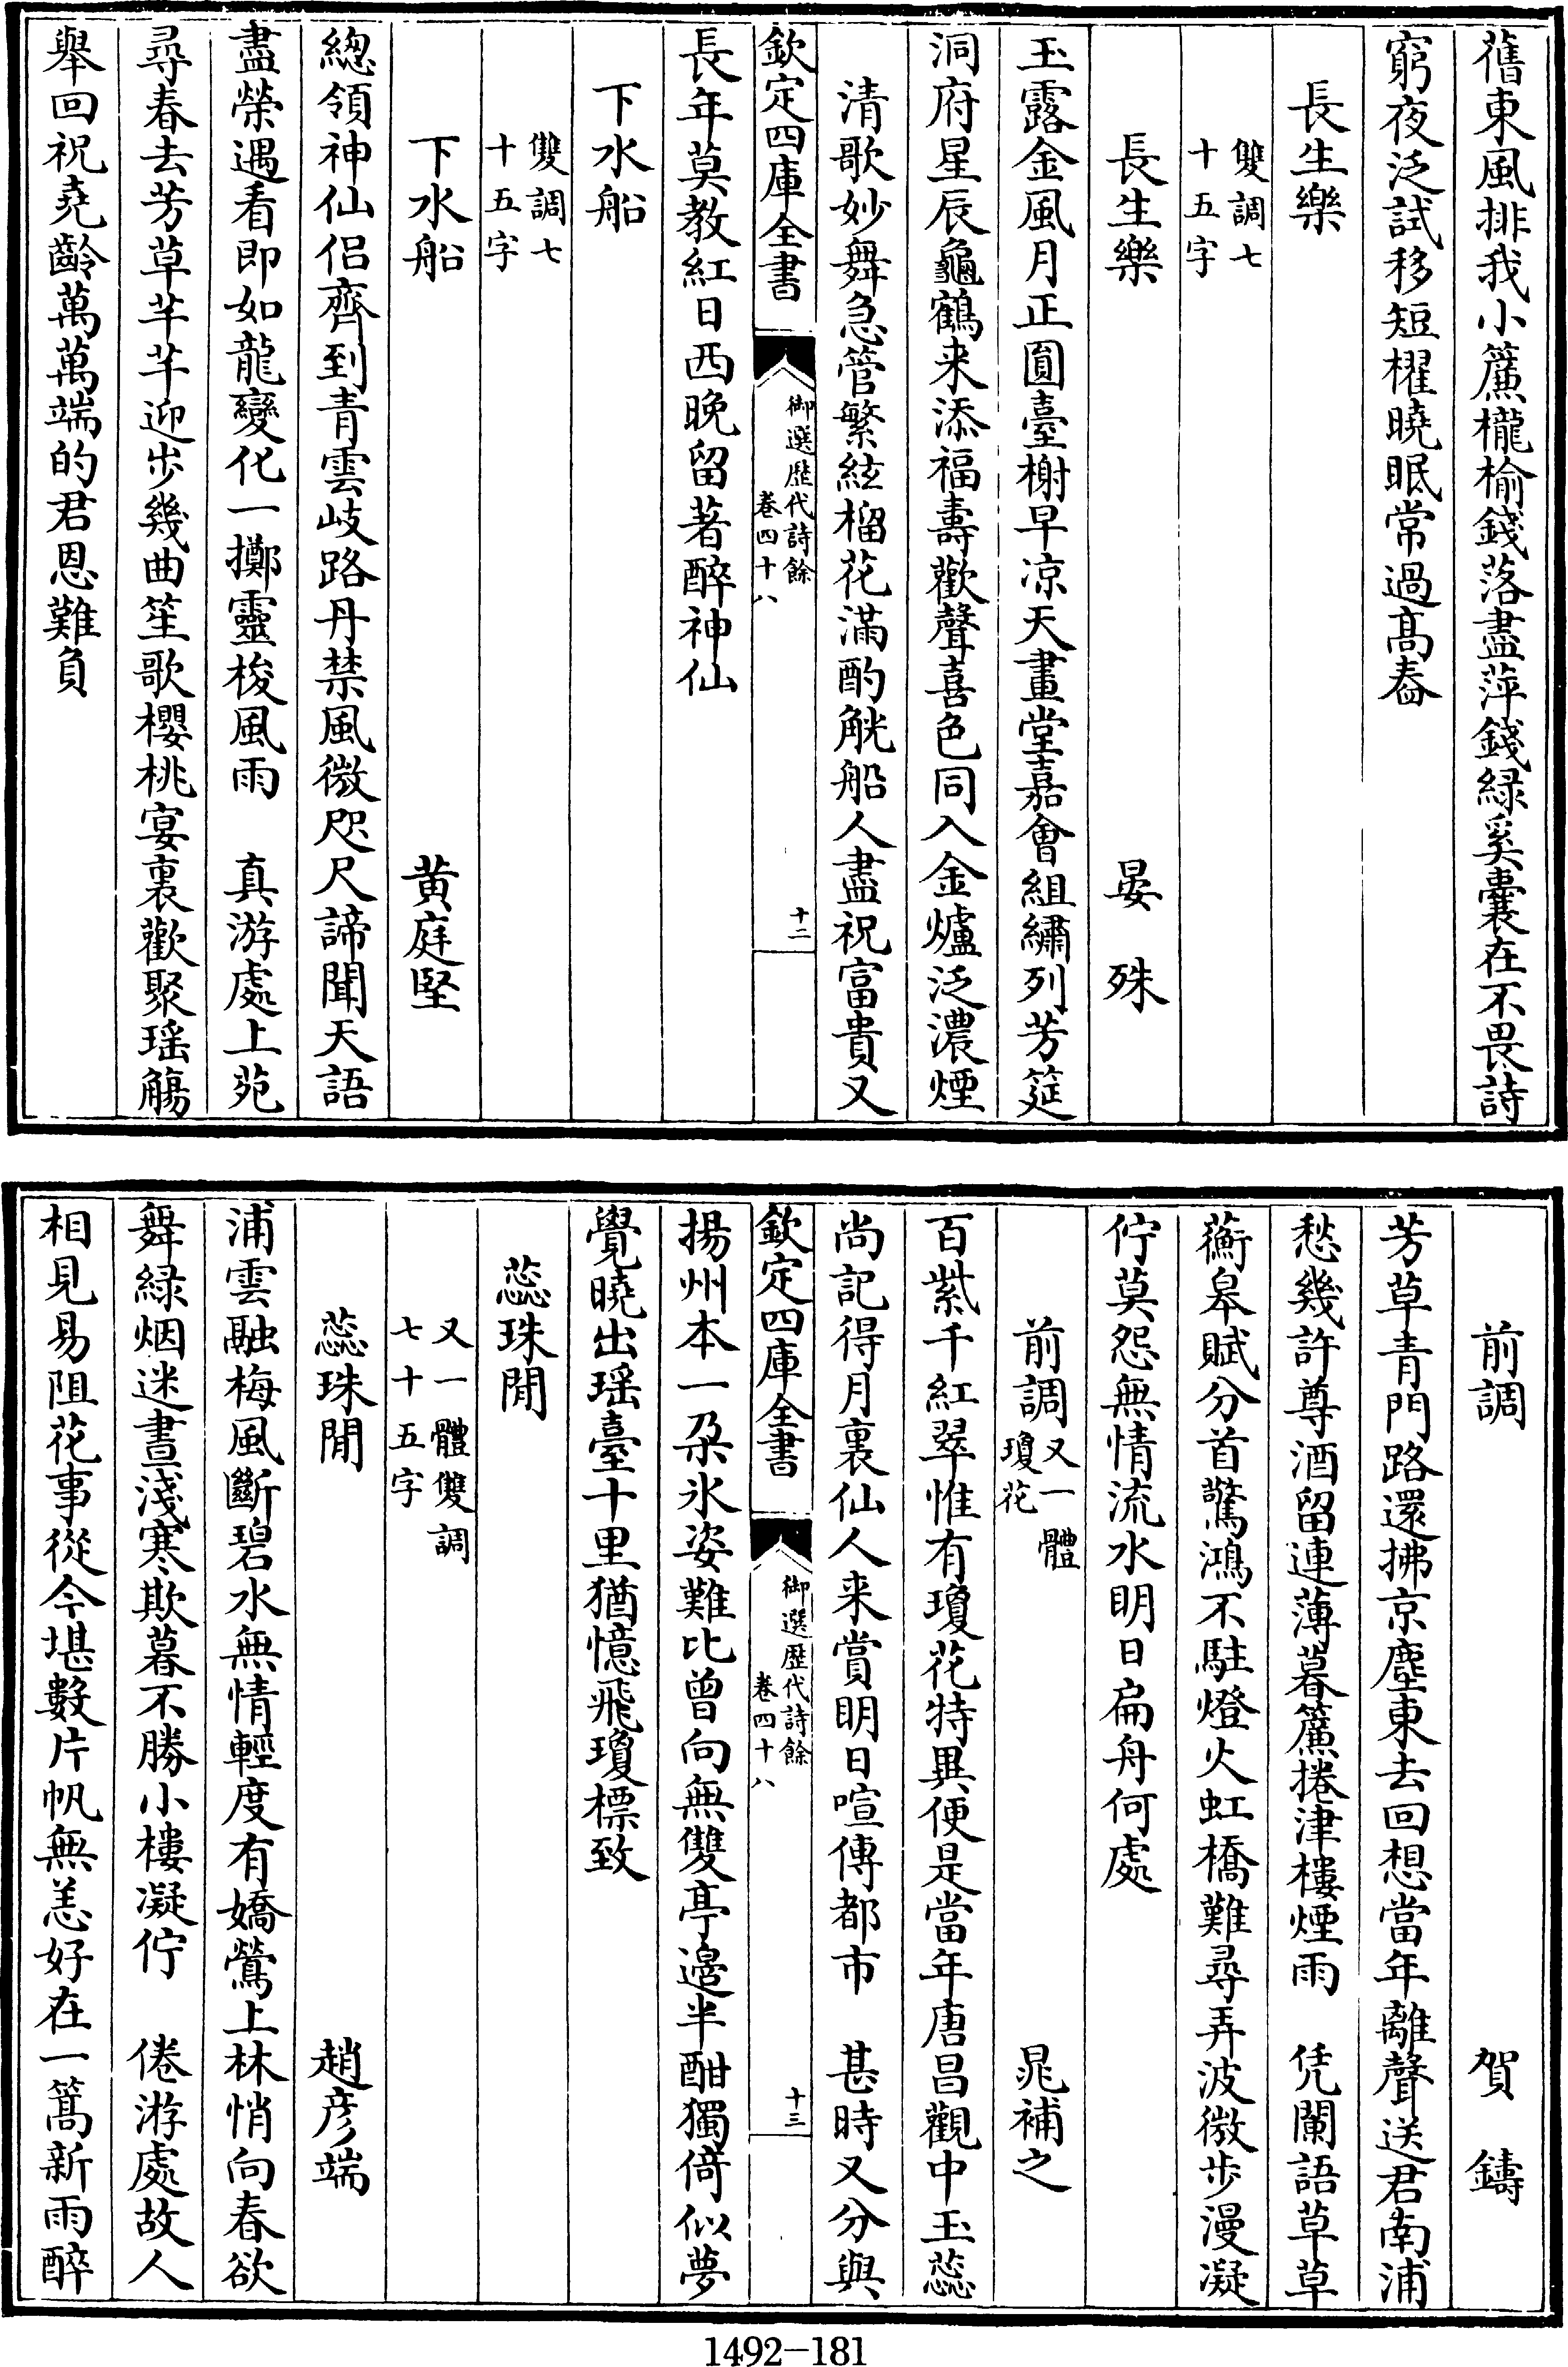 舊東風排我小簾櫳榆錢落盡萍錢緑奚囊在不畏詩
窮夜泛試移短櫂曉眠常過髙舂
長生樂
雙調七
十五字
長生樂　晏殊
玉露金風月正圓臺榭早凉天畫堂嘉會組繡列芳筵
洞府星辰龜鶴来添福壽歡聲喜色同入金爐泛濃煙
清歌妙舞急管繁絃榴花滿酌觥船人盡祝富貴又
欽定四庫全書
御選歴代詩餘
卷四十八
十二
長年莫教紅日西晚留著醉神仙
下水船
雙調七
十五字
下水船　黄庭堅
總領神仙侣齊到青雲岐路丹禁風微咫尺諦聞天語
盡榮遇看即如龍變化一擲靈梭風雨　真游處上苑
尋春去芳草芊芊迎步幾曲笙歌櫻桃宴裏歡聚瑶觴
舉回祝堯齡萬萬端的君恩難負
前調　賀鑄
芳草青門路還拂京塵東去回想當年離聲送君南浦
愁幾許尊酒留連薄暮簾捲津樓煙雨　凭闌語草草
蘅臯賦分首驚鴻不駐燈火虹橋難尋弄波微步漫凝
佇莫怨無情流水明日扁舟何處
前調　又一體　瓊花　晁補之
百紫千紅翠惟有瓊花特異便是當年唐昌觀中玉蕊
尚記得月裏仙人来賞明日喧傳都市　甚時又分與
欽定四庫全書
御選歴代詩餘
卷四十八
十三
揚州本一朶氷姿難比曾向無雙亭邉半酣獨倚似夢
覺曉出瑶臺十里猶憶飛瓊標致
蕊珠閒
又一體雙調
七十五字
蕊珠閒　趙彦端
浦雲融梅風斷碧水無情輕度有嬌鶯上林悄向春欲
舞緑烟迷晝淺寒欺暮不勝小樓凝佇　倦游處故人
相見易阻花事從今堪數片帆無恙好在一篙新雨醉
1492-181